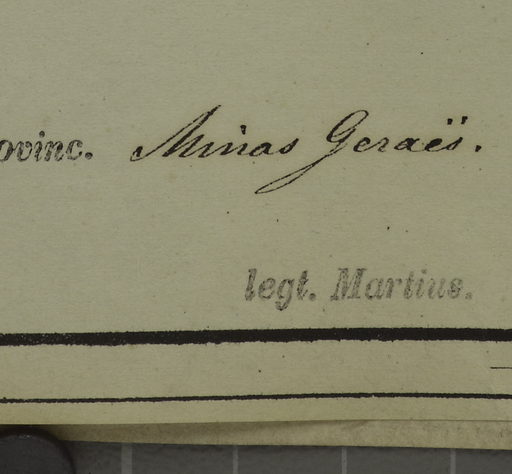 ovinc. Minas Geraës.
legt. Martius.